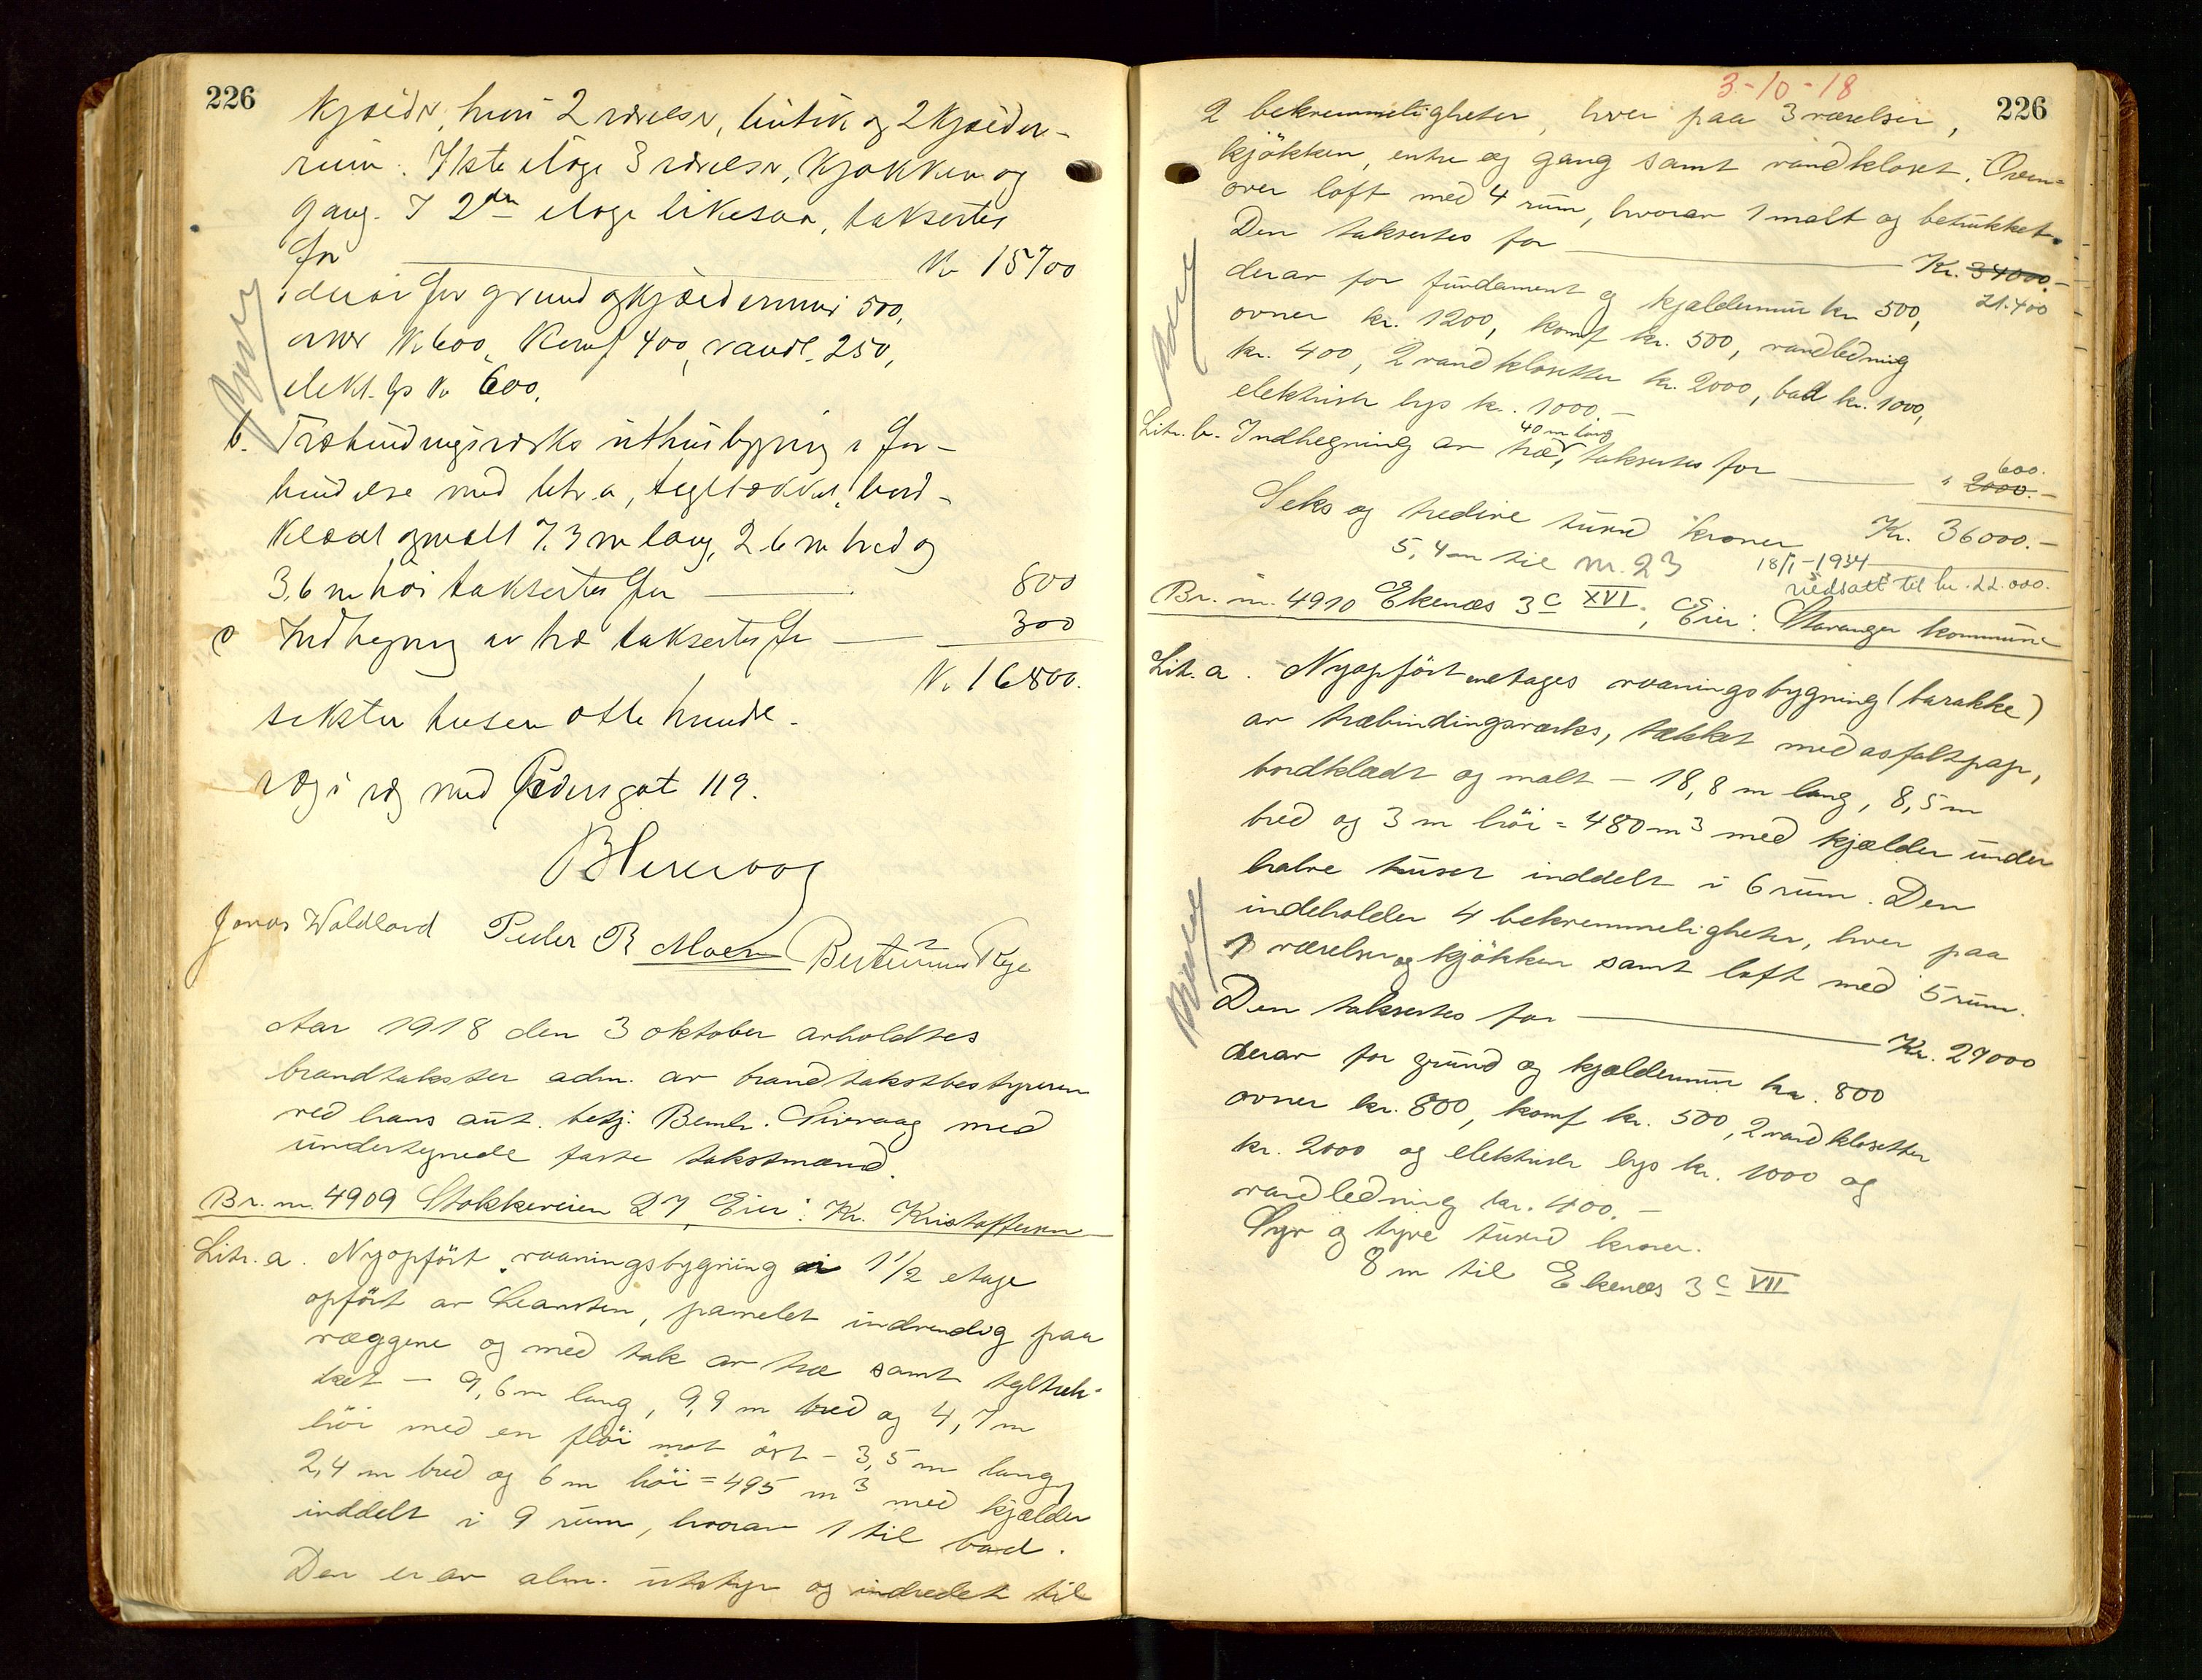 226
Kjælder, hvori 2 værelser, butik og 2 Kjælder-
rum. I 1ste etage 3 værelser, Kjøkken og
gang. I 2den etage likesaa, taksertes
for Kr 15700
derav for grund og Kjældermur 500,
ovner Kr. 600, Komf 400, vandl. 250,
elekt. lys Kr 600.
b. Træbindingsværks uthusbygning i for-
bindelse med litr. a, tegltækket, bord-
klædt og malt 7,3 m lang, 2,6 m bred og
3,6 m høi taksertes for 800
c Indhegning av træ taksertes for 300
Kr. 16800.
seksten tusen otte hundre.
væg i væg med Pedersgat 119.
Jonas Waldland Peder R Moen
Aar 1918 den 3 oktober avholdtes
brandtakster adm. av brandtakstbestyreren
ved hans aut. betj. Bernh. Siveraag med
undertegnede faste takstmænd.
Br. nr. 4909 Stokkeveien 27, Eier: Kr. Kristoffersen
Litr. a. Nyopført vaaningsbygning i 1 1/2 etage
opført av Leansten, panelet indvendig paa
væggene og med tak av træ samt tegltæk-
ket – 9,6 m lang, 9,9 m bred og 4,7 m
høi med en fløi mot øst – 3,5 m lang,
2,4 m bred og 6 m høi = 495 m3 med kjælder
inddelt i 9 rum, hvorav 1 til bad.
Den er av alm. utstyr og indredet til
3-10-18
226
2 bekvemmeligheter, hver paa 3 værelser,
kjøkken, entre og gang samt vandkloset. Oven-
over loft med 4 rum, hvorav 1 malt og betrukket.
Den taksertes for Kr. 34000.–
21.400
derav for fundament og kjældermur kr 500,
ovner kr. 1200, komf kr. 500, vandledning
kr. 400, 2 vandklosetter kr. 2000, bad kr. 1000,
elektrisk lys kr. 1000.–
40 m lang
Litr. b. Indhegning av træ, taksertes for
600.
" 2000.–
Seks og tredive tusind kroner Kr. 36000.–
5,4 m til nr. 23 18/1-1934
nedsatt til kr. 22.000.
Br. nr. 4910 Ekenæs 3c XVI, Eier: Stavanger kommune
Lit. a. Nyopført enetages vaaningsbygning (barakke)
av træbindingsværks, tækket med asfaltpap,
bordklædt og malt – 18,8 m lang, 8,5 m
bred og 3 m høi = 480 m3 med kjælder under
halve huset inddelt i 6 rum. Den
indeholder 4 bekvemmeligheter, hver paa
1 værelse og kjøkken samt loft med 5 rum.
Den taksertes for Kr. 27000
derav for grund og kjældermur kr. 800
ovner kr. 800, komf kr. 500, 2 vandklosetter
kr. 2000 og elektrisk lys kr. 1000 og
vandledning kr. 400.–
Syv og tyve tusind kroner.
8 m til Ekenæs 3c VII